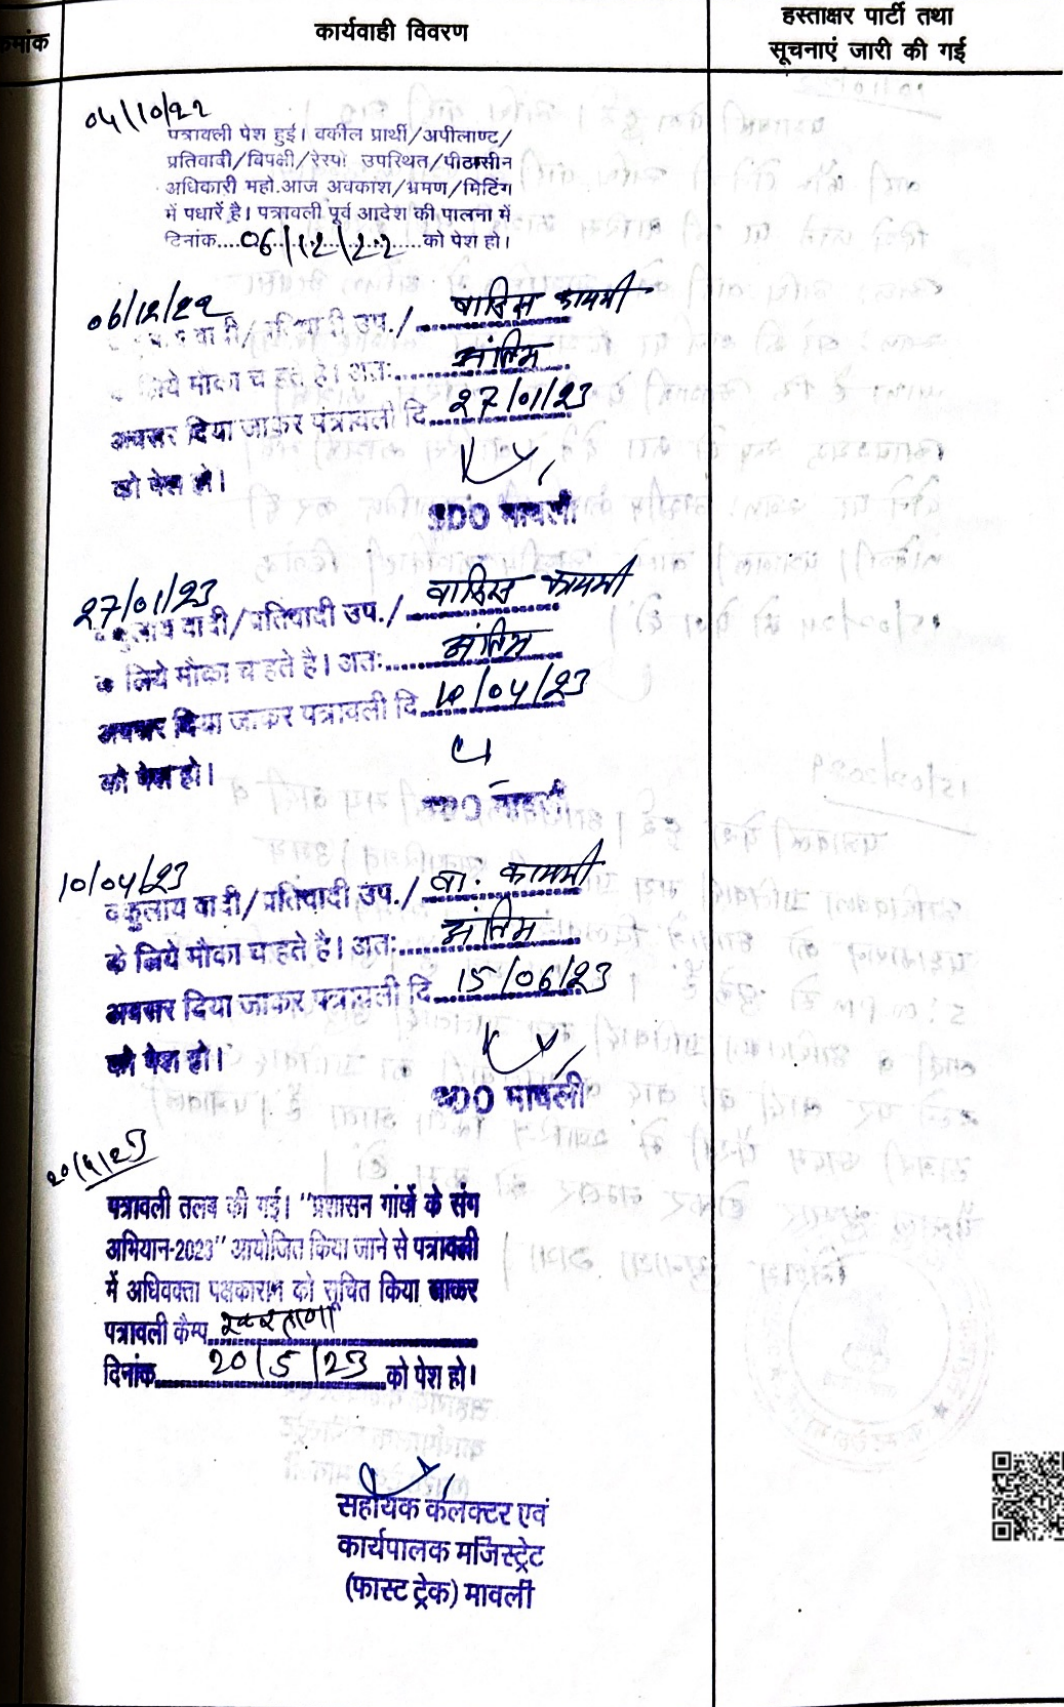 क्रमांक
कार्यवाही विवरण
हस्ताक्षर पार्टी तथा
सूचनाएं जारी की गई
04/10/22
पत्रावली पेश हुई। वकील प्रार्थी/अपीलाण्ट/
प्रतिवादी/विपक्षी/रेस्पो उपस्थित/पीठासीन
अधिकारी महो.आज अवकांश/भ्रमण/मिटिंग
में पधारें है। पत्रावली पूर्व आदेश की पालना में
दिनांक....06/12/22....को पेश हो।
06/12/22
वादी/प्रतिवादी उप./ वारिस कायमी
लिये मौका चहते है। अतः..... अंतिम
अवसर दिया जाकर पंत्रावली दि. 27/01/23
को पेश हो।
SDO मावली
27/01/23
वकुलाय वादी/प्रतिवादी उप./ वारिस कायमी
के लिये मौका चहते है। अतः..... अंतिम
अवसर दिया जाकर पत्रावली दि. 10/04/23
को पेश हो।
SDO मावली
10/04/23
वकुलाय वादी/प्रतिवादी उप./ वा. कायमी
के लिये मौका चहते है। अतः..... अंतिम
अवसर दिया जाकर पत्रावली दि. 15/06/23
को पेश हो।
SDO मावली
पत्रावली तलब की गई। "प्रशासन गांवों के संग
अभियान-2023" आयोजित किया जाने से पत्रावली
में अधिवक्ता पक्षकारान को सूचित किया जाकर
पत्रावली कैम्प
दिनांक 20/5/23 को पेश हो।
सहायक कलक्टर एवं
कार्यपालक मजिस्ट्रेट
(फास्ट ट्रेक) मावली